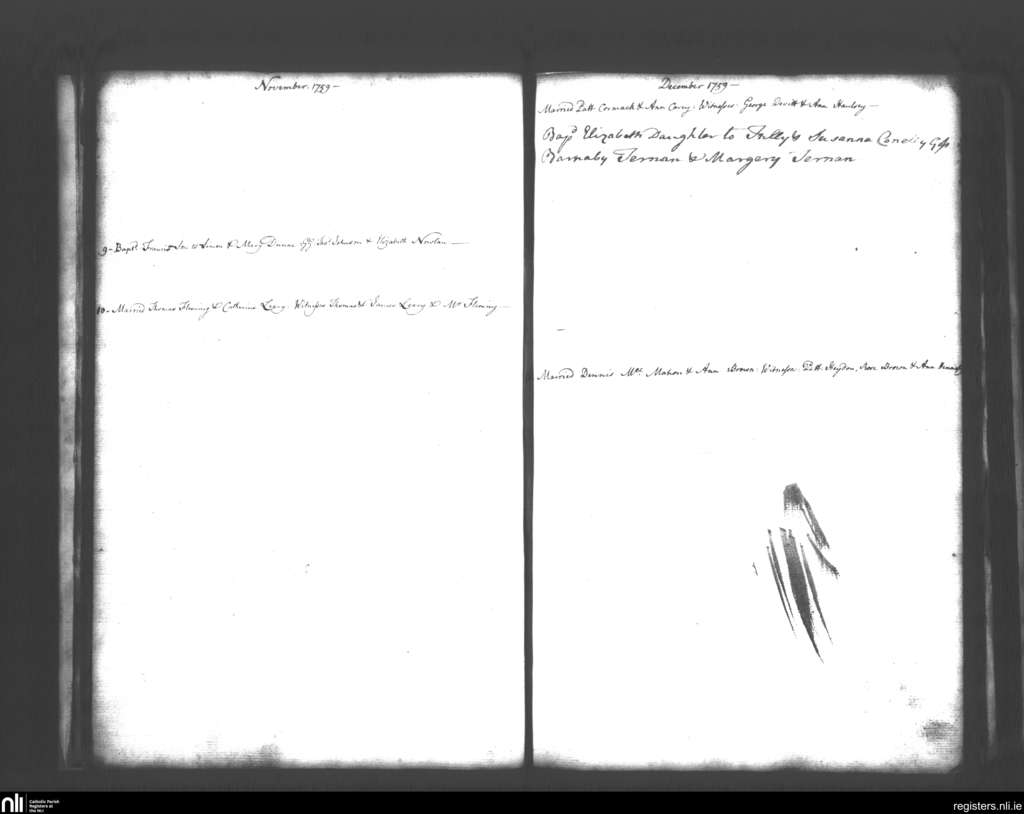 November 1759 —
9 - Bapt. Francis Son to James & Mary Dunne Gps. Thos. Johnson & Elizabeth Nowlan —
10 - Married Thomas Fleming & Catherine Leary. Witnesses Thomas & James Leary & Mr. Fleming —
December 1759 —
Married Patt Cormack & Ann Carey. Witnesses George Devitt & Ann
Bapd. Elizabeth Daughter to & Susanna Gps
Barnaby Ternan & Margery Ternan
Married Dennis Mahon & Ann Brown. Witnesses Patt. Heydon, Rose Brown & Ann
nli
Catholic Parish
Registers at
the NLI
registers.nli.ie